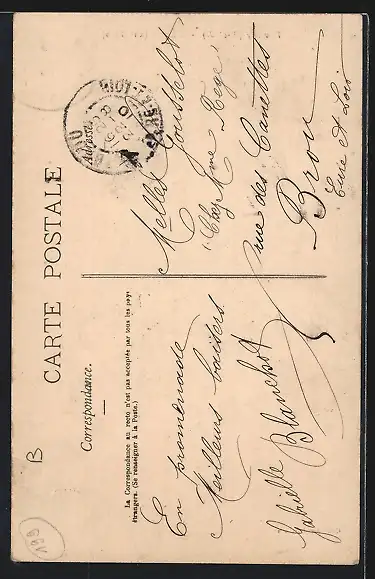 CARTE POSTALE
Correspondance.
La Correspondance au recto n'est pas acceptée par tous les pays
étrangers. (Se renseigner à la Poste.)
En promenade
Meilleurs baisers
Gabrielle Blanchot
Adresse
Melles Gousselot
Chez Mme
rue des Canettes
Brou
Eure et Loir
B
199